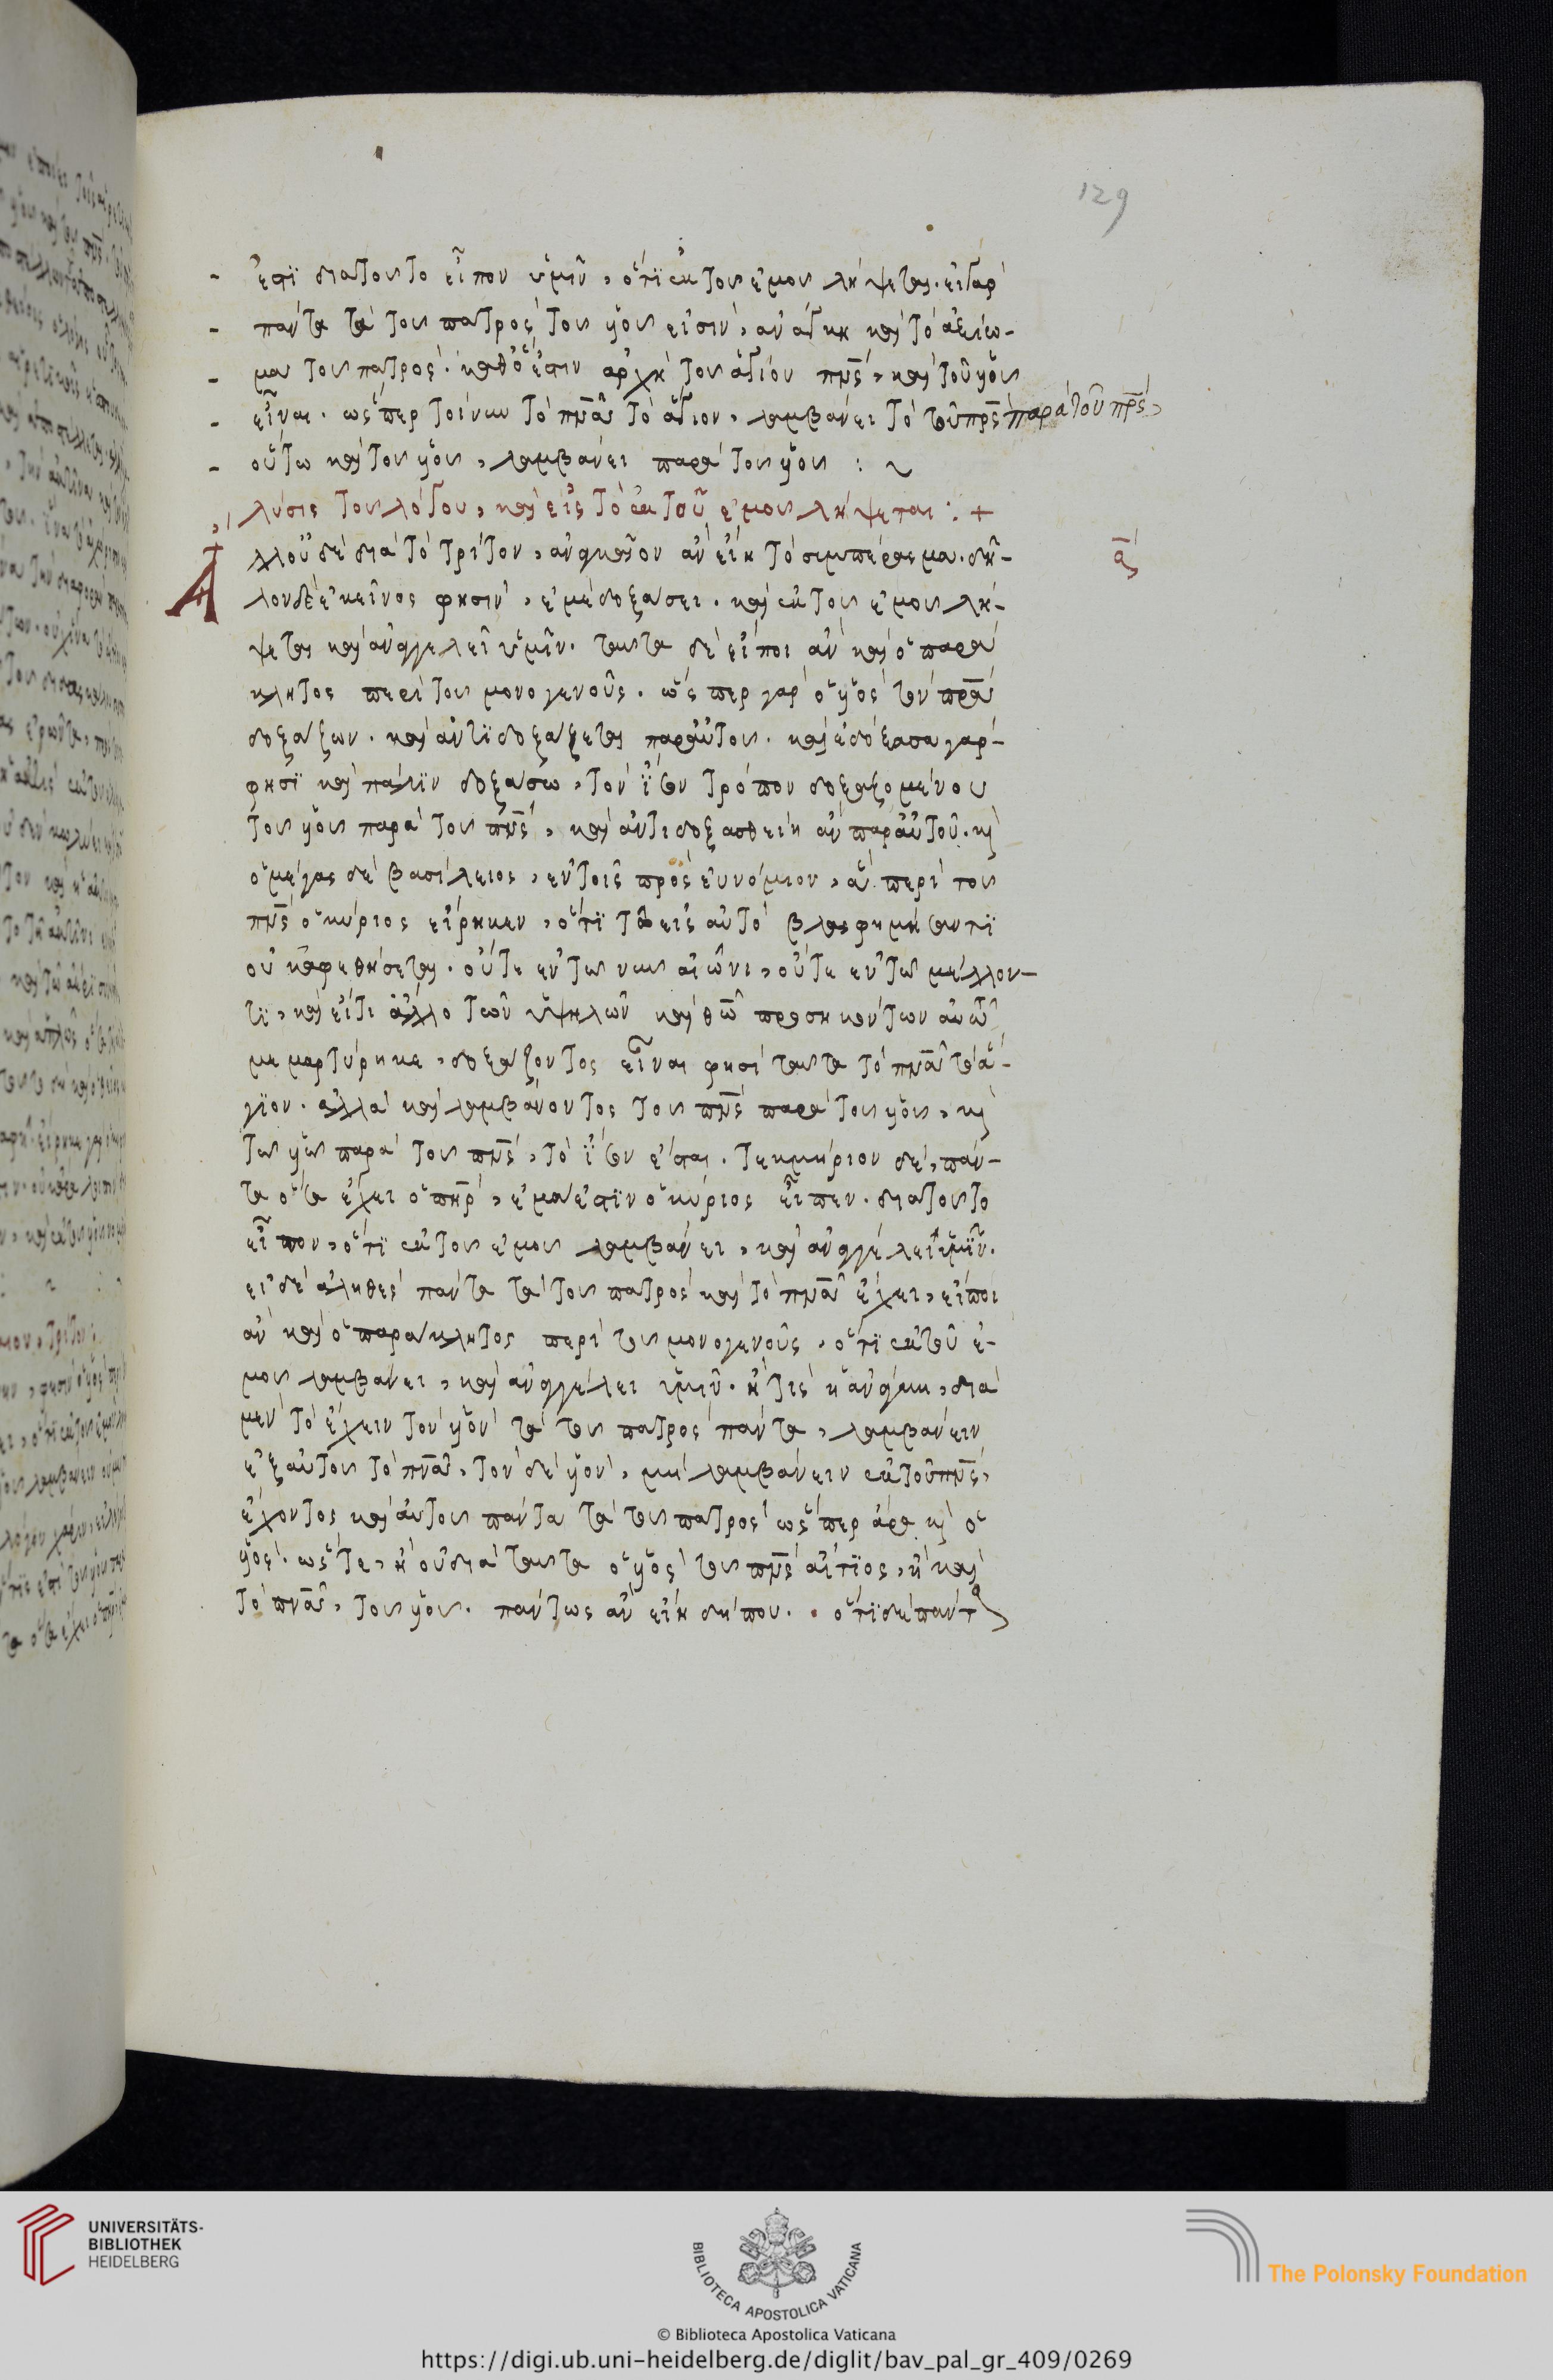 129
ἐστὶ διατοῦτο εἶπον ὑμῖν, ὅτι ἐκ τοῦ ἐμοῦ λήψεται. εἰ γὰρ
πάντα τὰ τοῦ πατρὸς τοῦ υἱοῦ εἰσὶν, ἀνάγκη καὶ τὸ ἀξίω-
μα τοῦ πατρὸς. καθ' ὅ ἐστιν ἀρχὴ τοῦ ἁγίου πνς, καὶ τοῦ υἱοῦ
εἶναι. ὥσπερ τοίνυν τὸ πνα τὸ ἅγιον, λαμβάνει τὸ τοῦ πρς παρὰ τοῦ πρς,
οὕτω καὶ τοῦ υἱοῦ, λαμβάνει παρὰ τοῦ υἱοῦ : ~
λύσις τοῦ λόγου, καὶ εἰς τὸ ἐκ τοῦ ἐμοῦ λήψεται : +
Ἀ λλ' οὐδὲ διὰ τὸ τρίτον, ἀναγκαῖον ἂν εἴη τὸ συμπέρασμα. δῆ-
ας
λον δὲ ἐκεῖνος φησὶν, ἐμὲ δοξάσει. καὶ ἐκ τοῦ ἐμοῦ λή-
ψεται καὶ ἀναγγελεῖ ὑμῖν. ταῦτα δὲ εἴποι ἂν καὶ ὁ παρά
κλητος περὶ τοῦ μονογενοῦς. ὥσπερ γὰρ ὁ υἱὸς τὸν πρα
δοξάζων. καὶ ἀντιδοξάζεται παρ' αὐτοῦ. καὶ ἐδόξασα γὰρ-
φησὶ καὶ πάλιν δοξάσω, τὸν ἴσον τρόπον δοξαζομένου
τοῦ υἱοῦ παρὰ τοῦ πνς, καὶ ἀντιδοξασθείη ἂν παρ' αὐτοῦ. κὶ
ὁ μέγας δὲ βασίλειος, ἐν τοῖς πρὸς εὐνόμιον, ἃ περὶ τοῦ
πνς ὁ κύριος εἴρηκεν, ὅτι τῷ εἰς αὐτὸ βλασφημήσαντι
οὐκ ἀφεθήσεται. οὔτε ἐν τῷ νῦν αἰῶνι, οὔτε ἐν τῷ μέλλον-
τι, καὶ εἴ τι ἄλλο τῶν ὑψηλῶν καὶ θῶ προσηκόντων αὐτῶ
μεμαρτύρηκε, δοξάζοντος εἶναι φησὶ ταῦτα τὸ πνα τὸ ἅ-
γιον. ἀλλὰ καὶ λαμβάνοντος τοῦ πνς παρὰ τοῦ υἱοῦ, κὶ
τῷ υἱῷ παρὰ τοῦ πνς, τὸ ἴσον ἔσται. τεκμήριον δὲ, πάν-
τα ὅσα ἔχει ὁ πηρ, ἐμά ἐστιν ὁ κύριος εἶπεν. διατοῦτο
εἶπον, ὅτι ἐκ τοῦ ἐμοῦ λαμβάνει, καὶ ἀναγγέλει ὑμῖν.
εἰ δὲ ἀληθὲς πάντα τὰ τοῦ πατρὸς καὶ τὸ πνα ἔχει, εἴποι
ἂν καὶ ὁ παράκλητος περὶ τοῦ μονογενοῦς, ὅτι ἐκ τοῦ ἐ-
μοῦ λαμβάνει, καὶ ἀναγγέλει ὑμῖν. ἢ τίς ἡ ἀνάγκη, διὰ
μὲν τὸ ἔχειν τὸν υἱὸν τὰ τοῦ πατρὸς πάντα, λαμβάνειν
ἐξ αὐτοῦ τὸ πνα, τὸν δὲ υἱὸν, μὴ λαμβάνειν ἐκ τοῦ πνς,
ἔχοντος καὶ αὐτοῦ πάντα τὰ τοῦ πατρὸς ὥσπερ ἄρα κὶ ὁ
υἱός. ὥστε, ἢ οὐ διὰ ταῦτα ὁ υἱὸς τοῦ πνς αἴτιος, ἢ καὶ
τὸ πνα, τοῦ υἱοῦ. πάντως ἂν εἴη δήπου. ὅτι δὲ πάντα
UNIVERSITÄTS-
BIBLIOTHEK
HEIDELBERG
BIBLIOTECA APOSTOLICA VATICANA
The Polonsky Foundation
© Biblioteca Apostolica Vaticana
https://digi.ub.uni-heidelberg.de/diglit/bav_pal_gr_409/0269